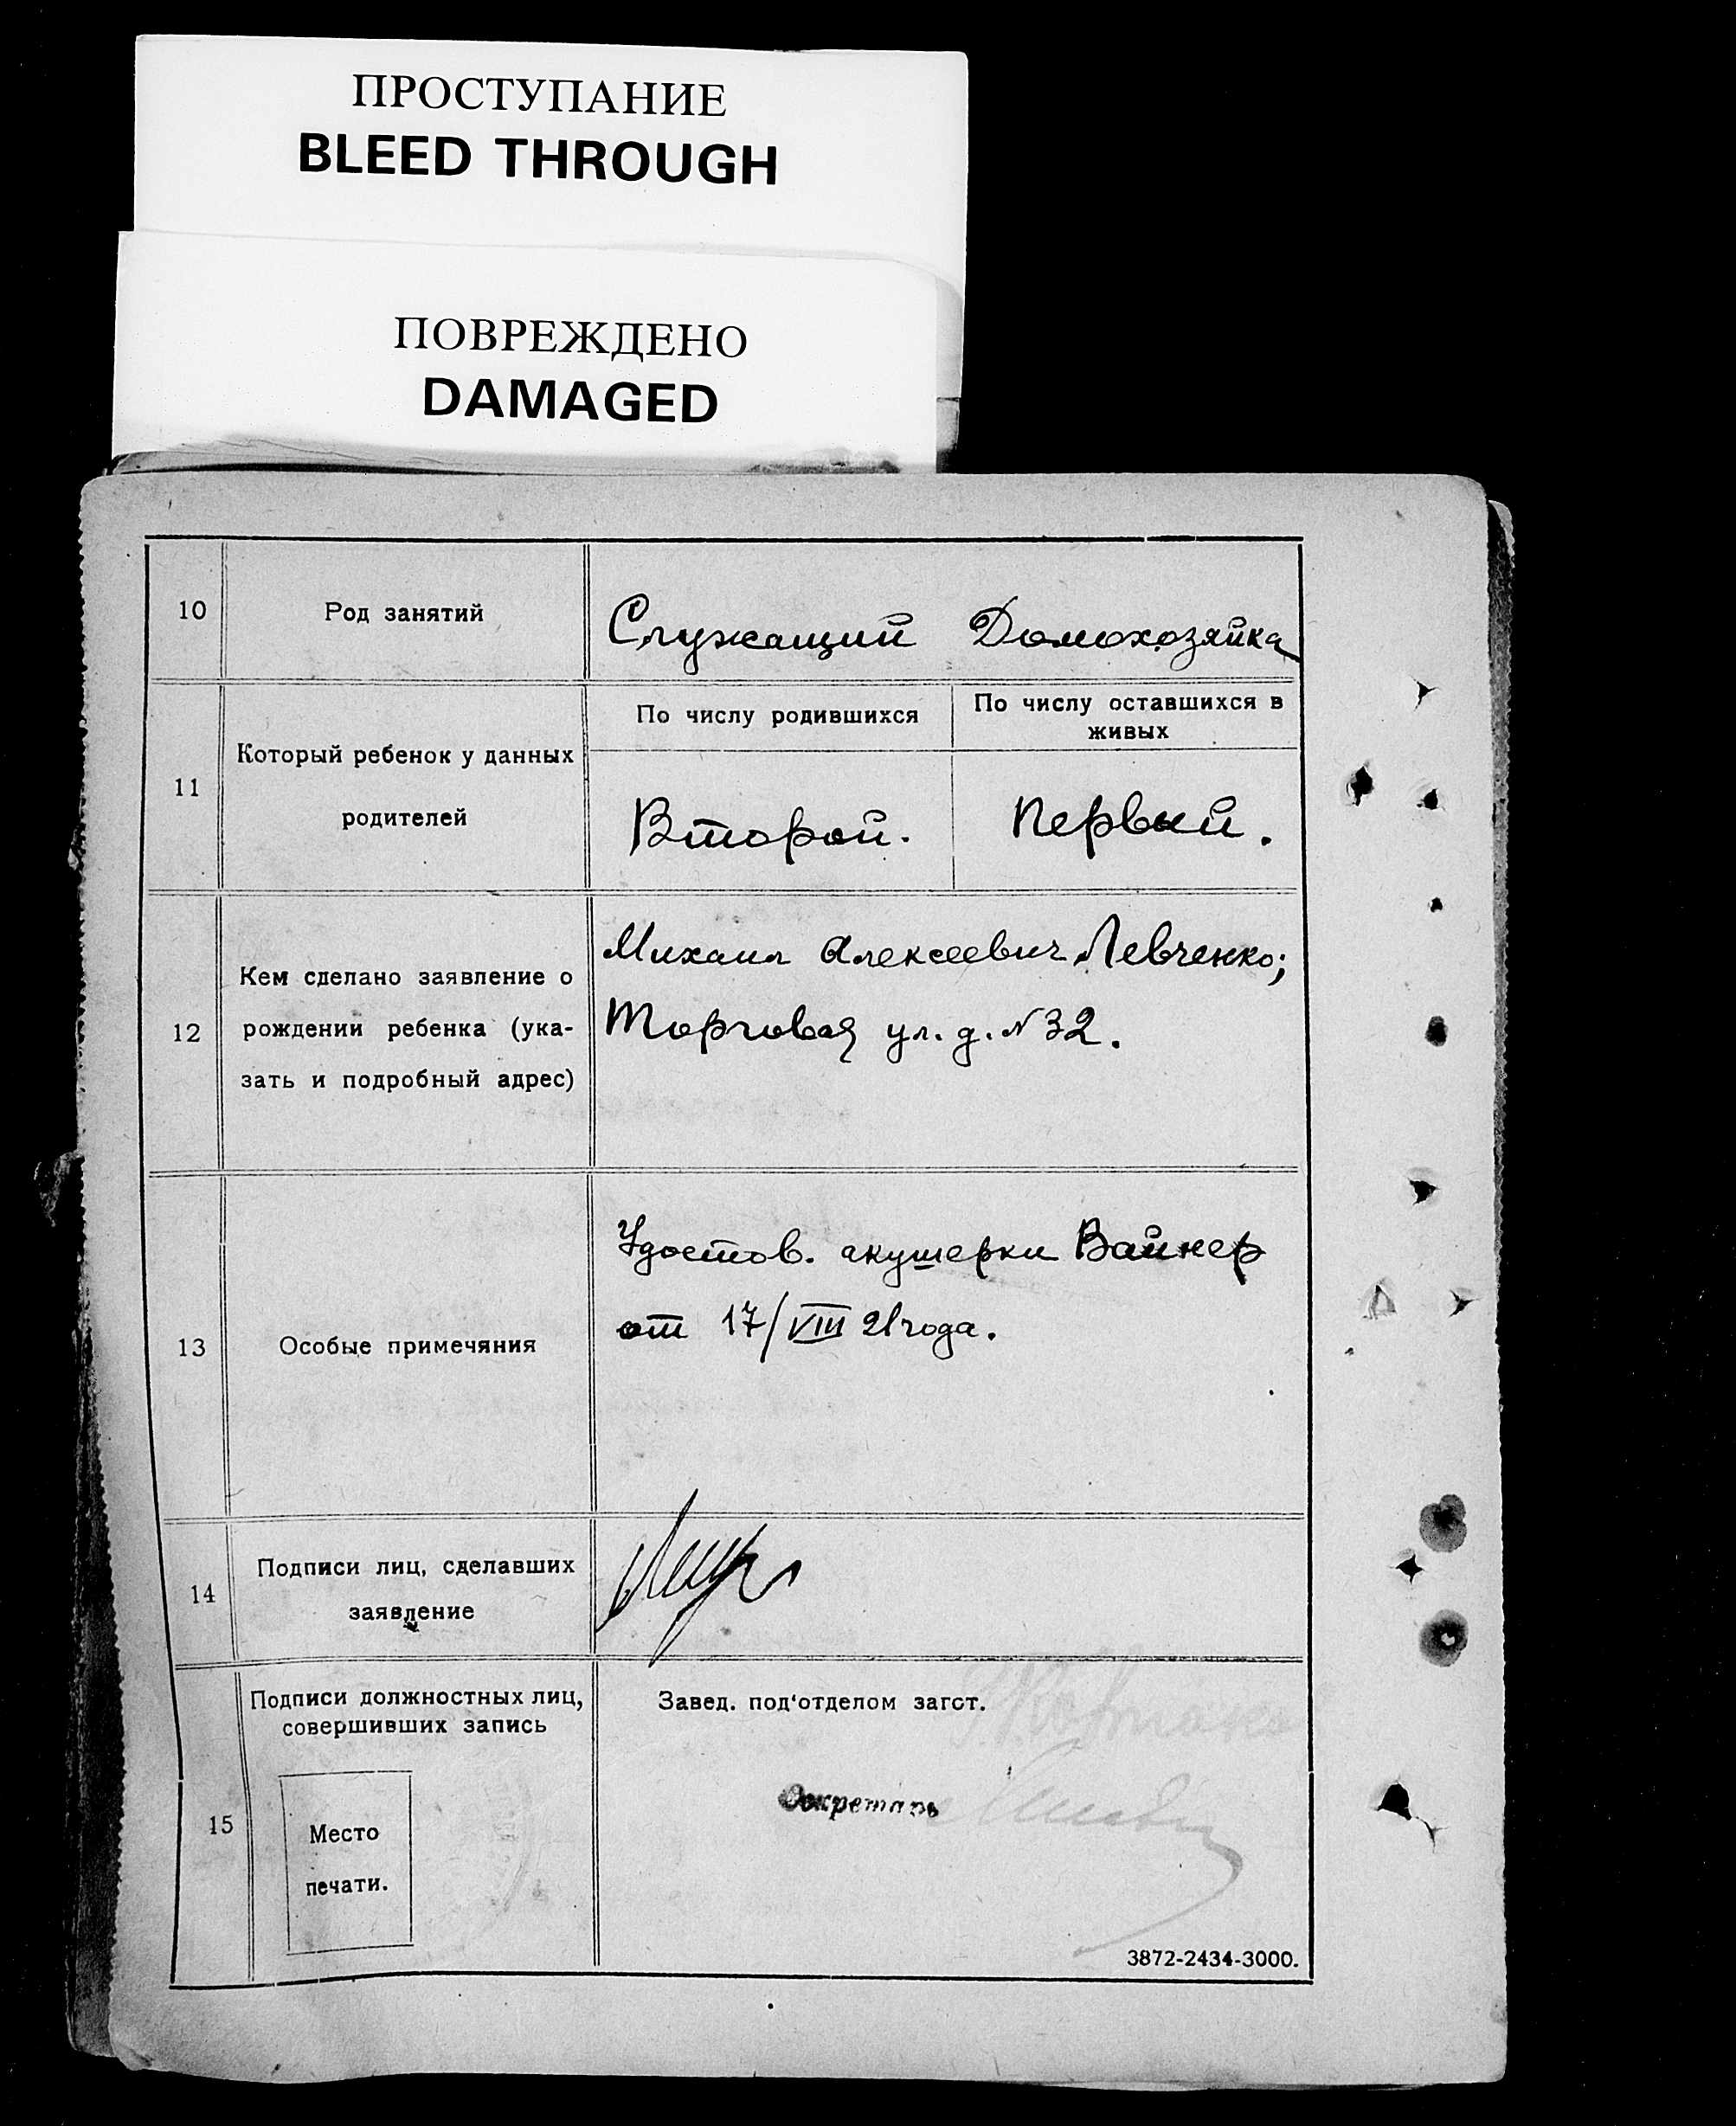 ПРОСТУПАНИЕ
BLEED THROUGH
ПОВРЕЖДЕНО
DAMAGED
10
Род занятий
Служащий Домохозяйка
11
Который ребенок у данных
родителей
По числу родившихся
По числу оставшихся в
живых
Второй.
Первый.
12
Кем сделано заявление о
рождении ребенка (ука-
зать и подробный адрес)
Михаил Алексеевич Левченко;
Торговая ул. д. №32.
13
Особые примечяния
Удостов. акушерки Вайнер
от 17/VIII 21 года.
14
Подписи лиц, сделавших
заявление
15
Подписи должностных лиц,
совершивших запись
Место
печати.
Завед. под'отделом загст.
Секретарь
3872-2434-3000.